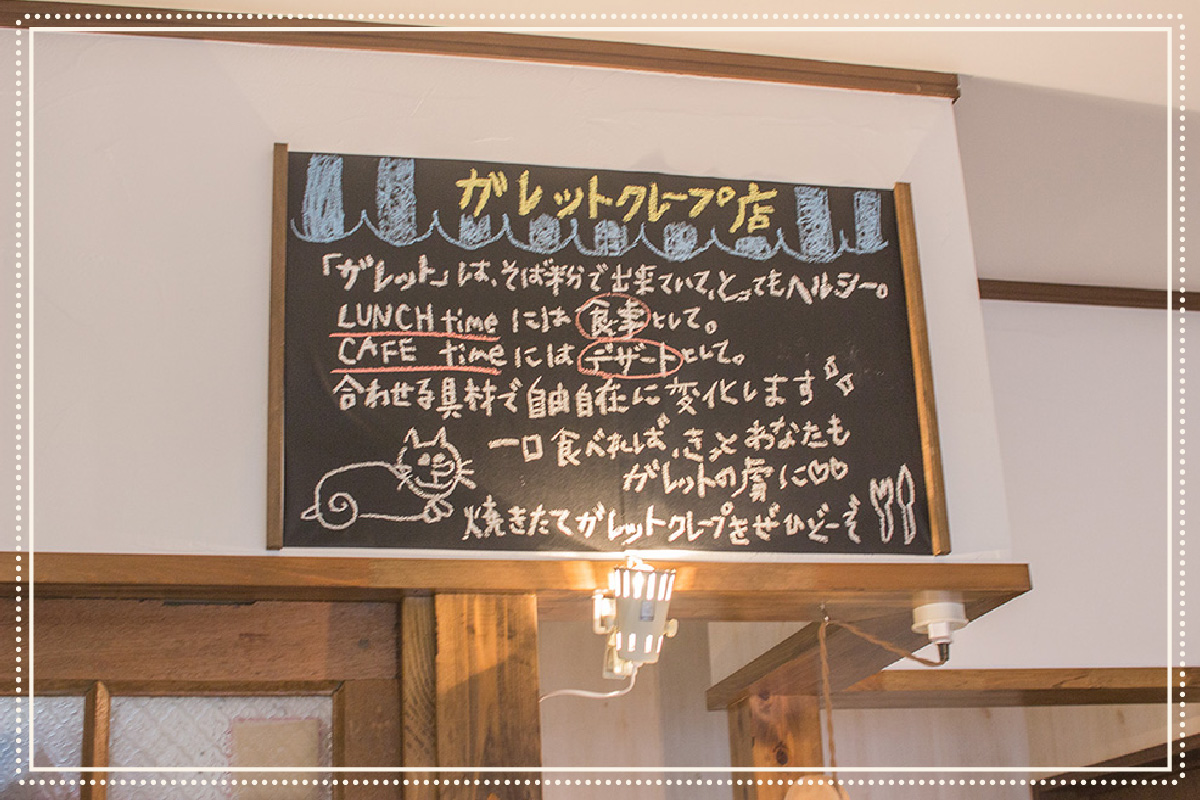 ガレットクレープ店
「ガレット」は、そば粉で出来ていて、とってもヘルシー。
LUNCH timeには食事として。
CAFE timeにはデザートとして。
合わせる具材で自由自在に変化します
一口食べれば、きっとあなたも
ガレットの虜に♡♡
焼きたてガレットクレープをぜひどーぞ